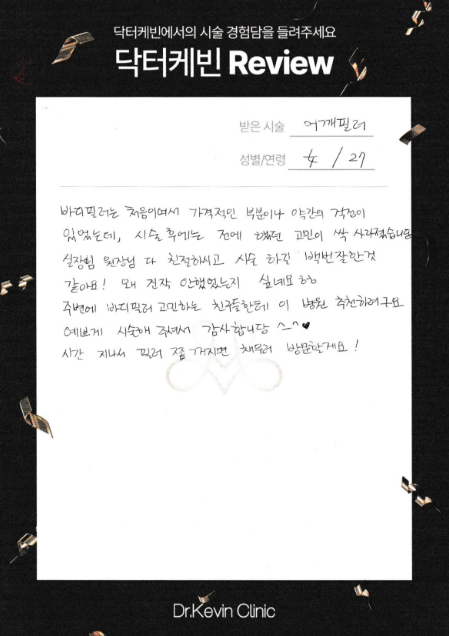 닥터케빈에서의 시술 경험담을 들려주세요
닥터케빈 Review
받은 시술 어깨필러
성별/연령 女 / 27
바디필러는 처음이여서 가격적인 부분이나 약간의 걱정이
있었는데, 시술 후에는 전에 했던 고민이 싹 사라졌습니다
실장님 원장님 다 친절하시고 시술 하길 백번 잘한것
같아요! 왜 진작 안했었는지 싶네요 ㅎㅎ
주변에 바디필러 고민하는 친구들한테 이 병원 추천하려구요
예쁘게 시술해 주셔서 감사합니당 ^^♥
시간 지나서 필러 좀 꺼지면 재필러 방문할게요!
Dr.Kevin Clinic